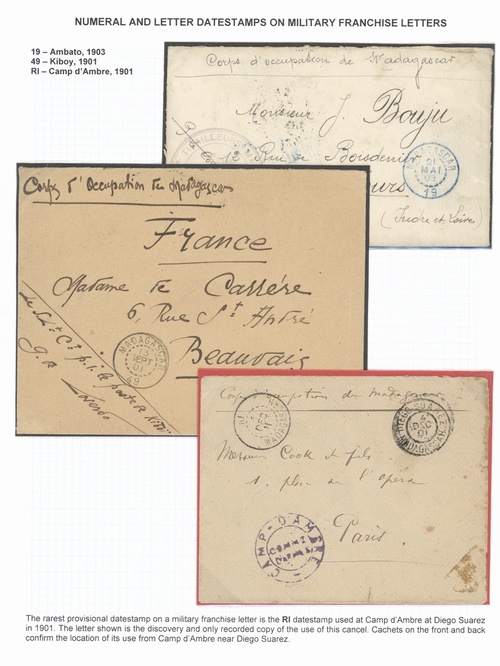 NUMERAL AND LETTER DATESTAMPS ON MILITARY FRANCHISE LETTERS
19 – Ambato, 1903
49 – Kiboy, 1901
RI – Camp d'Ambre, 1901
Corps d'occupation de Madagascar
Monsieur J. Bouju
12 Rue de Boisdenier
(Indre et Loire)
21
MAI
03
19
Corps d'Occupation de Madagascar
France
Madame de Carrère
6, Rue St André
Beauvais
MADAGASCAR
13
SEPT
01
49
Corps d'occupation de Madagascar
RI
MADAGASCAR
DIEGO-SUAREZ
DEC
01
MADAGASCAR
Messieurs Cook et fils
1. place de l'opéra
Paris.
CAMP-D'AMBRE
The rarest provisional datestamp on a military franchise letter is the RI datestamp used at Camp d'Ambre at Diego Suarez
in 1901. The letter shown is the discovery and only recorded copy of the use of this cancel. Cachets on the front and back
confirm the location of its use from Camp d'Ambre near Diego Suarez.